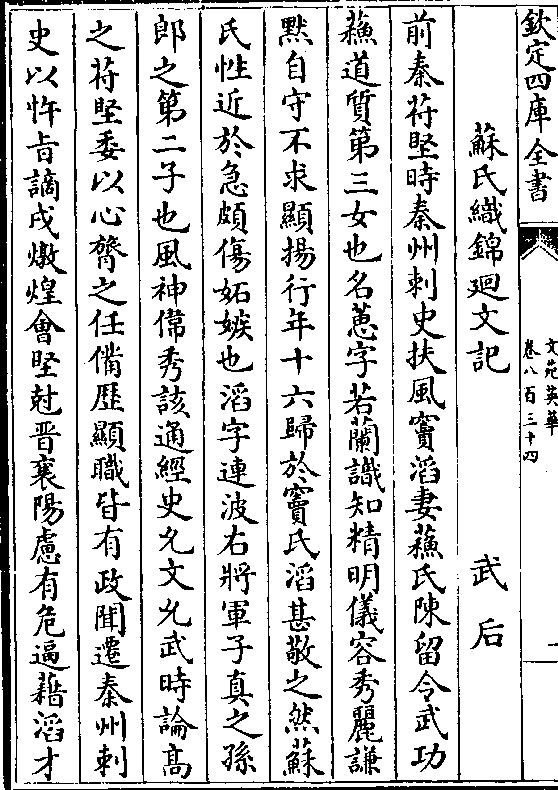 欽定四庫全書
文苑英華
卷八百三十四
一
蘇氏織錦廻文記
武后
前秦苻堅時秦州刺史扶風竇滔妻蘓氏陳留令武功
蘓道質第三女也名蕙字若蘭識知精明儀容秀麗謙
默自守不求顯揚行年十六歸於竇氏滔甚敬之然蘇
氏性近於急頗傷妬嫉也滔字連波右將軍子真之孫
郎之第二子也風神偉秀該通經史允文允武時論高
之苻堅委以心膂之任備歷顯職皆有政聞遷秦州刺
史以忤旨謫戍燉煌會堅尅晋襄陽慮有危逼藉滔才